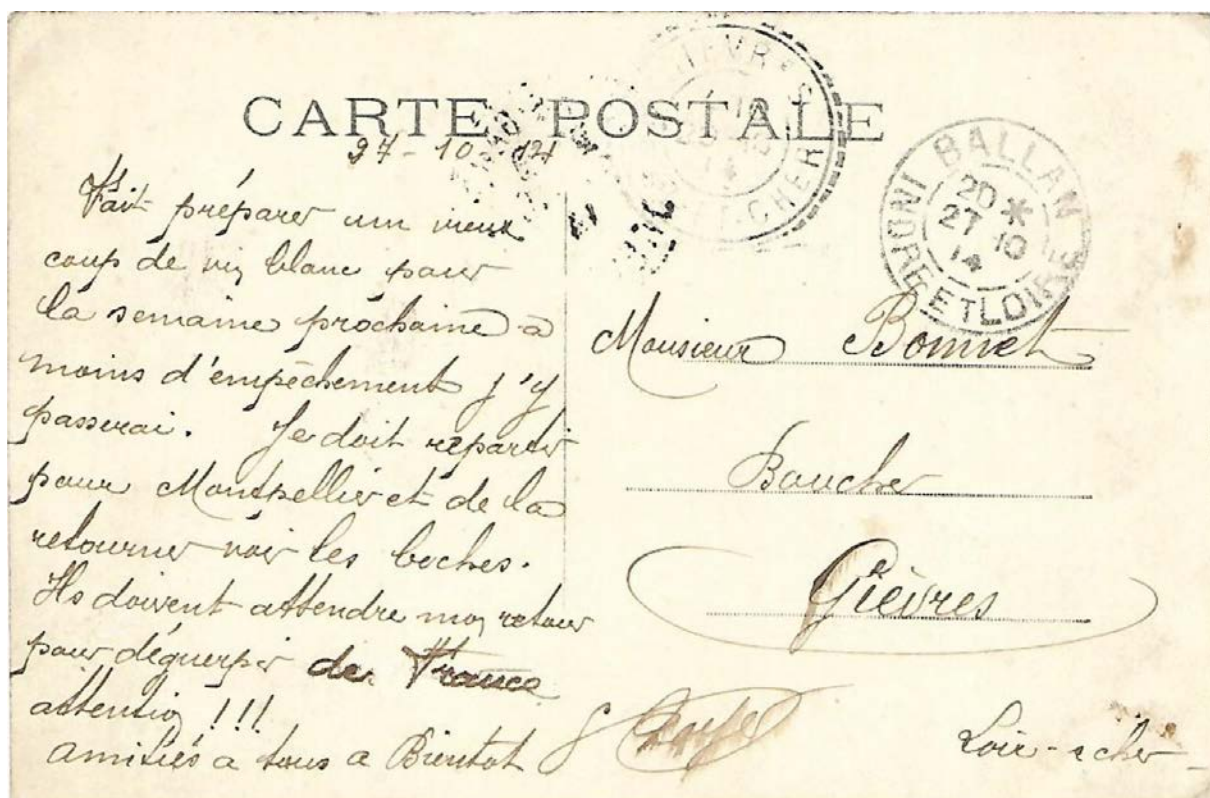 CARTE POSTALE
27-10-14
Fait préparer un vieux
coup de vin blanc pour
la semaine prochaine à
moins d'empêchement j'y
passerai. Je doit repartir
pour Montpellier et de la
retourner voir les boches.
Ils doivent attendre mon retour
pour déguerpir de France
attention !!!
amitiés a tous a Bientot
GIEVRES
LOIR ET CHER
BALLAN
20 *
27 10
14
INDRE ET LOIRE
Monsieur Bonnet
Boucher
Gièvres
Loir-e cher